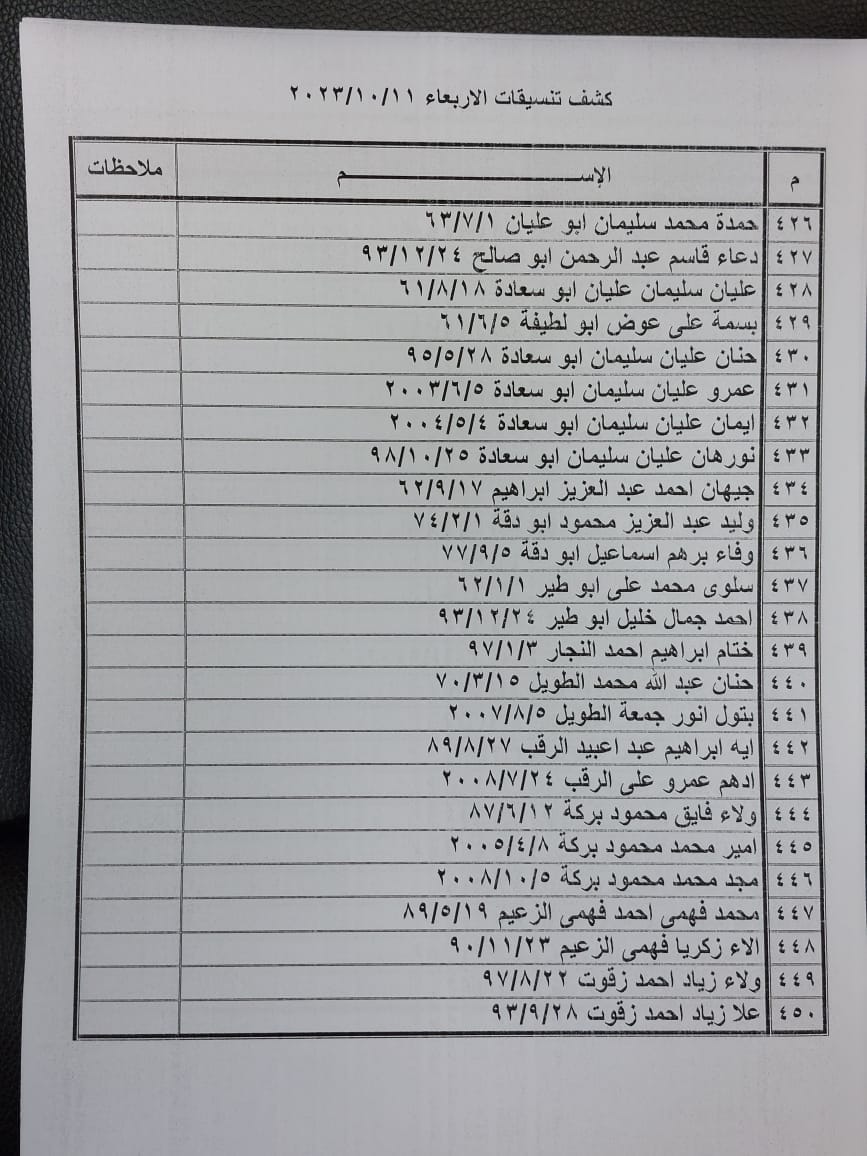 كشف تنسيقات الاربعاء ٢٠٢٣/١٠/١١
م الإســـــــم ملاحظات
٤٢٦ حمدة محمد سليمان ابو عليان ٦٣/٧/١
٤٢٧ دعاء قاسم عبد الرحمن ابو صالح ٩٣/١٢/٢٤
٤٢٨ عليان سليمان عليان ابو سعادة ٦١/٨/١٨
٤٢٩ بسمة على عوض ابو لطيفة ٦١/٦/٥
٤٣٠ حنان عليان سليمان ابو سعادة ٩٥/٥/٢٨
٤٣١ عمرو عليان سليمان ابو سعادة ٢٠٠٣/٦/٥
٤٣٢ ايمان عليان سليمان ابو سعادة ٢٠٠٤/٥/٤
٤٣٣ نورهان عليان سليمان ابو سعادة ٩٨/١٠/٢٥
٤٣٤ جيهان احمد عبد العزيز ابراهيم ٦٢/٩/١٧
٤٣٥ وليد عبد العزيز محمود ابو دقة ٧٤/٢/١
٤٣٦ وفاء برهم اسماعيل ابو دقة ٧٧/٩/٥
٤٣٧ سلوى محمد على ابو طير ٦٢/١/١
٤٣٨ احمد جمال خليل ابو طير ٩٣/١٢/٢٤
٤٣٩ ختام ابراهيم احمد النجار ٩٧/١/٣
٤٤٠ حنان عبد الله محمد الطويل ٧٠/٣/١٥
٤٤١ بتول انور جمعة الطويل ٢٠٠٧/٨/٥
٤٤٢ ايه ابراهيم عبد اعبيد الرقب ٨٩/٨/٢٧
٤٤٣ ادهم عمرو على الرقب ٢٠٠٨/٧/٢٤
٤٤٤ ولاء فايق محمود بركة ٨٧/٦/١٢
٤٤٥ امير محمد محمود بركة ٢٠٠٥/٤/٨
٤٤٦ مجد محمد محمود بركة ٢٠٠٨/١٠/٥
٤٤٧ محمد فهمى احمد فهمى الزعيم ٨٩/�/١٩
٤٤٨ الاء زكريا فهمى الزعيم ٩٠/١١/٢٣
٤٤٩ ولاء زياد احمد زقوت ٩٧/٨/٢٢
٤٥٠ علا زياد احمد زقوت ٩٣/٩/٢٨